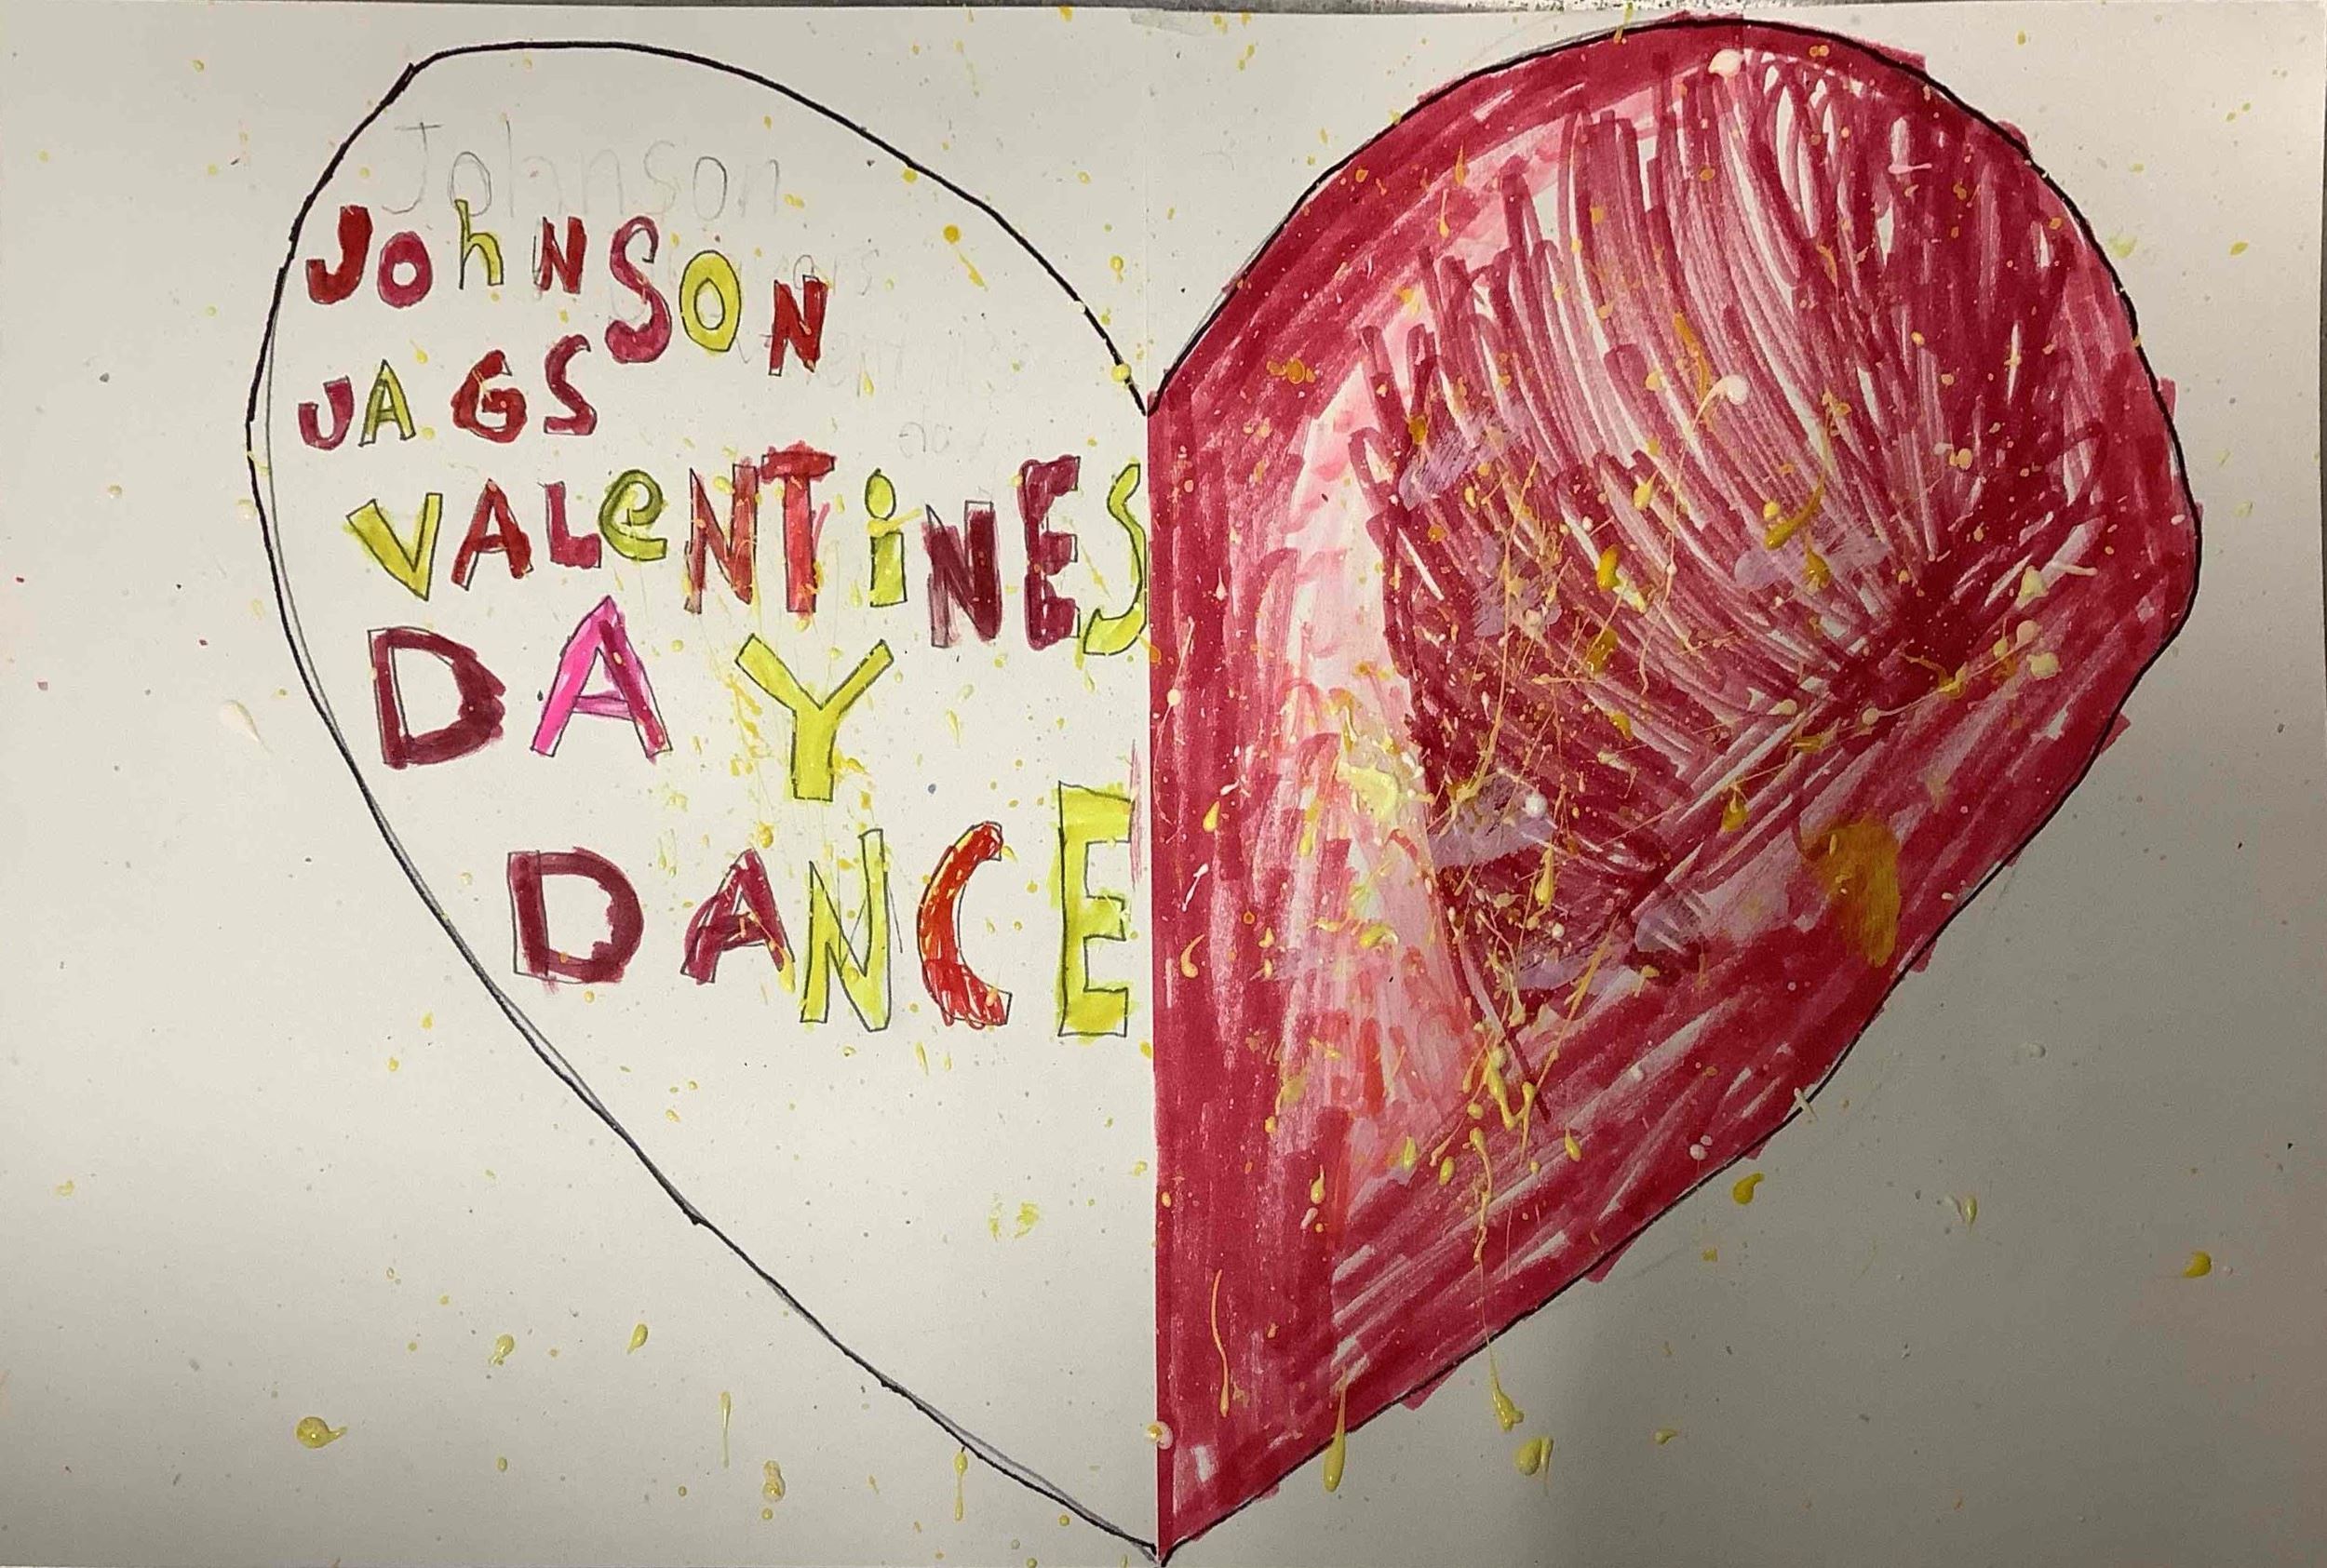 Johnson
JOhNSON
JAGS
VALeNTiNES
DAY
DANCE